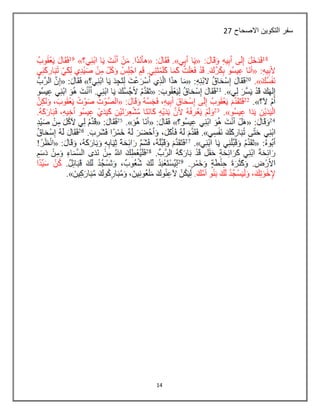 سفر التكوين الاصحاح 27
18فَدَخَلَ إِلَى أَبِيهِ وَقَالَ: «يَا أَبِي». فَقَالَ: «هأَنَذَا. مَنْ أَنْتَ يَا ابْنِي؟» 19فَقَالَ يَعْقُوبُ
لأَبِيهِ: «أَنَا عِيسُو بِكْرُكَ. قَدْ فَعَلْتُ كَمَا كَلَّمْتَنِي. قُمِ اجْلِسْ وَكُلْ مِنْ صَيْدِي لِكَيْ تُبَارِكَنِي
نَفْسُكَ». 20فَقَالَ إِسْحَاقُ لابْنِهِ: «مَا هذَا الَّذِي أَسْرَعْتَ لِتَجِدَ يَا ابْنِي؟» فَقَالَ: «إِنَّ الرَّبَّ
إِلهَكَ قَدْ يَسَّرَ لِي». 21فَقَالَ إِسْحَاقُ لِيَعْقُوبَ: «تَقَدَّمْ لأَجُسَّكَ يَا ابْنِي. أَأَنْتَ هُوَ ابْنِي عِيسُو
أَمْ لاَ؟». 22فَتَقَدَّمَ يَعْقُوبُ إِلَى إِسْحَاقَ أَبِيهِ، فَجَسَّهُ وَقَالَ: «الصَّوْتُ صَوْتُ يَعْقُوبَ، وَلكِنَّ
الْيَدَيْنِ يَدَا عِيسُو». 23وَلَمْ يَعْرِفْهُ لأَنَّ يَدَيْهِ كَانَتَا مُشْعِرَتَيْنِ كَيَدَيْ عِيسُو أَخِيهِ، فَبَارَكَهُ.
24وَقَالَ: «هَلْ أَنْتَ هُوَ ابْنِي عِيسُو؟» فَقَالَ: «أَنَا هُوَ». 25فَقَالَ: «قَدِّمْ لِي لآكُلَ مِنْ صَيْدِ
ابْنِي حَتَّى تُبَارِكَكَ نَفْسِي». فَقَدَّمَ لَهُ فَأَكَلَ، وَأَحْضَرَ لَهُ خَمْرًا فَشَرِبَ. 26فَقَالَ لَهُ إِسْحَاقُ
أَبُوهُ: «تَقَدَّمْ وَقَبِّلْنِي يَا ابْنِي». 27فَتَقَدَّمَ وَقَبَّلَهُ، فَشَمَّ رَائِحَةَ ثِيَابِهِ وَبَارَكَهُ، وَقَالَ: «انْظُرْ!
رَائِحَةُ ابْنِي كَرَائِحَةِ حَقْل قَدْ بَارَكَهُ الرَّبُّ. 28فَلْيُعْطِكَ اللهُ مِنْ نَدَى السَّمَاءِ وَمِنْ دَسَمِ
الأَرْضِ. وَكَثْرَةَ حِنْطَةٍ وَخَمْرٍ. 29لِيُسْتَعْبَدْ لَكَ شُعُوبٌ، وَتَسْجُدْ لَكَ قَبَائِلُ. كُنْ سَيِّدًا
لإِخْوَتِكَ، وَلْيَسْجُدْ لَكَ بَنُو أُمِّكَ. لِيَكُنْ لاَعِنُوكَ مَلْعُونِينَ، وَمُبَارِكُوكَ مُبَارَكِينَ».
14